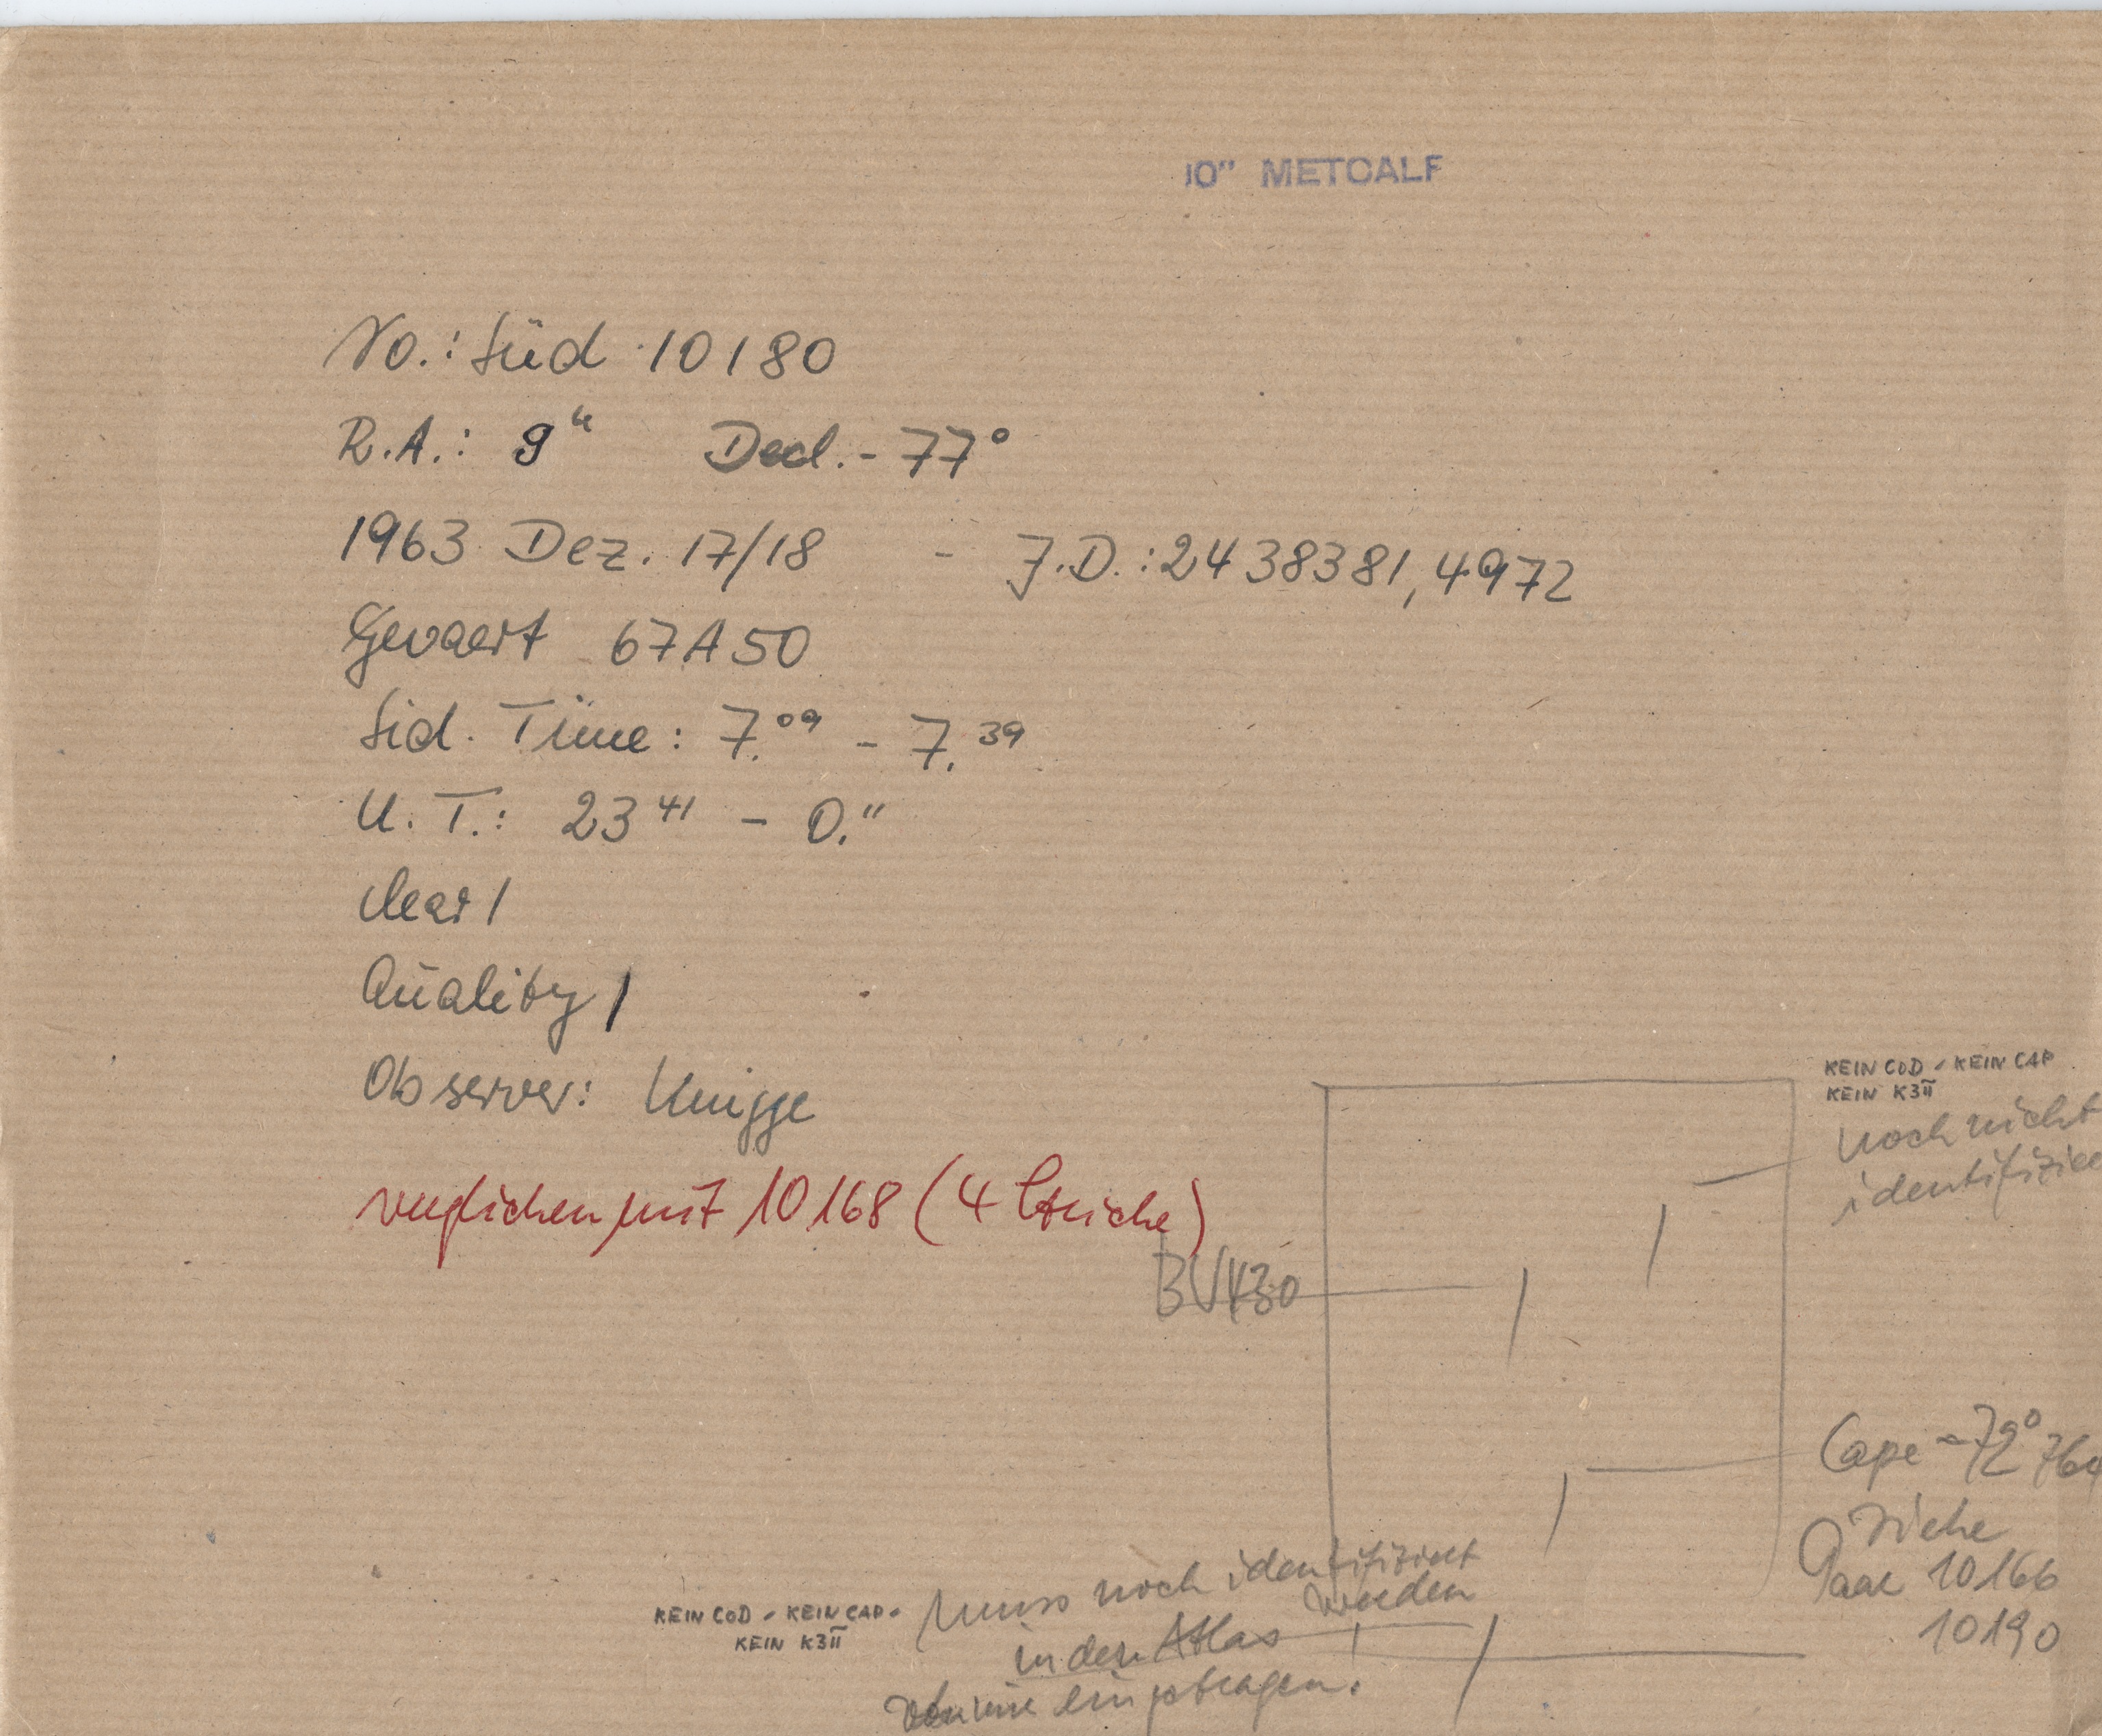 10" METCALF
No.: Süd 10180
R.A.: 9ʰ Decl. - 77°
1963 Dez. 17/18 - J.D.: 2438381,4972
Gevaert 67A50
Sid. Time: 7.⁰⁹ - 7.³⁹
U.T.: 23⁴¹ - 0.¹¹
clear 1
Quality 1
Observer: Knigge
verglichen mit 10168 (4 Striche)
KEIN COD - KEIN CAP
KEIN K3II
noch nicht
BV430
Cape -72°
Siehe
Paar 10166
10190
muss noch identifiziert
werden
KEIN COD - KEIN CAP -
KEIN K3II
in den Atlas
eingetragen!